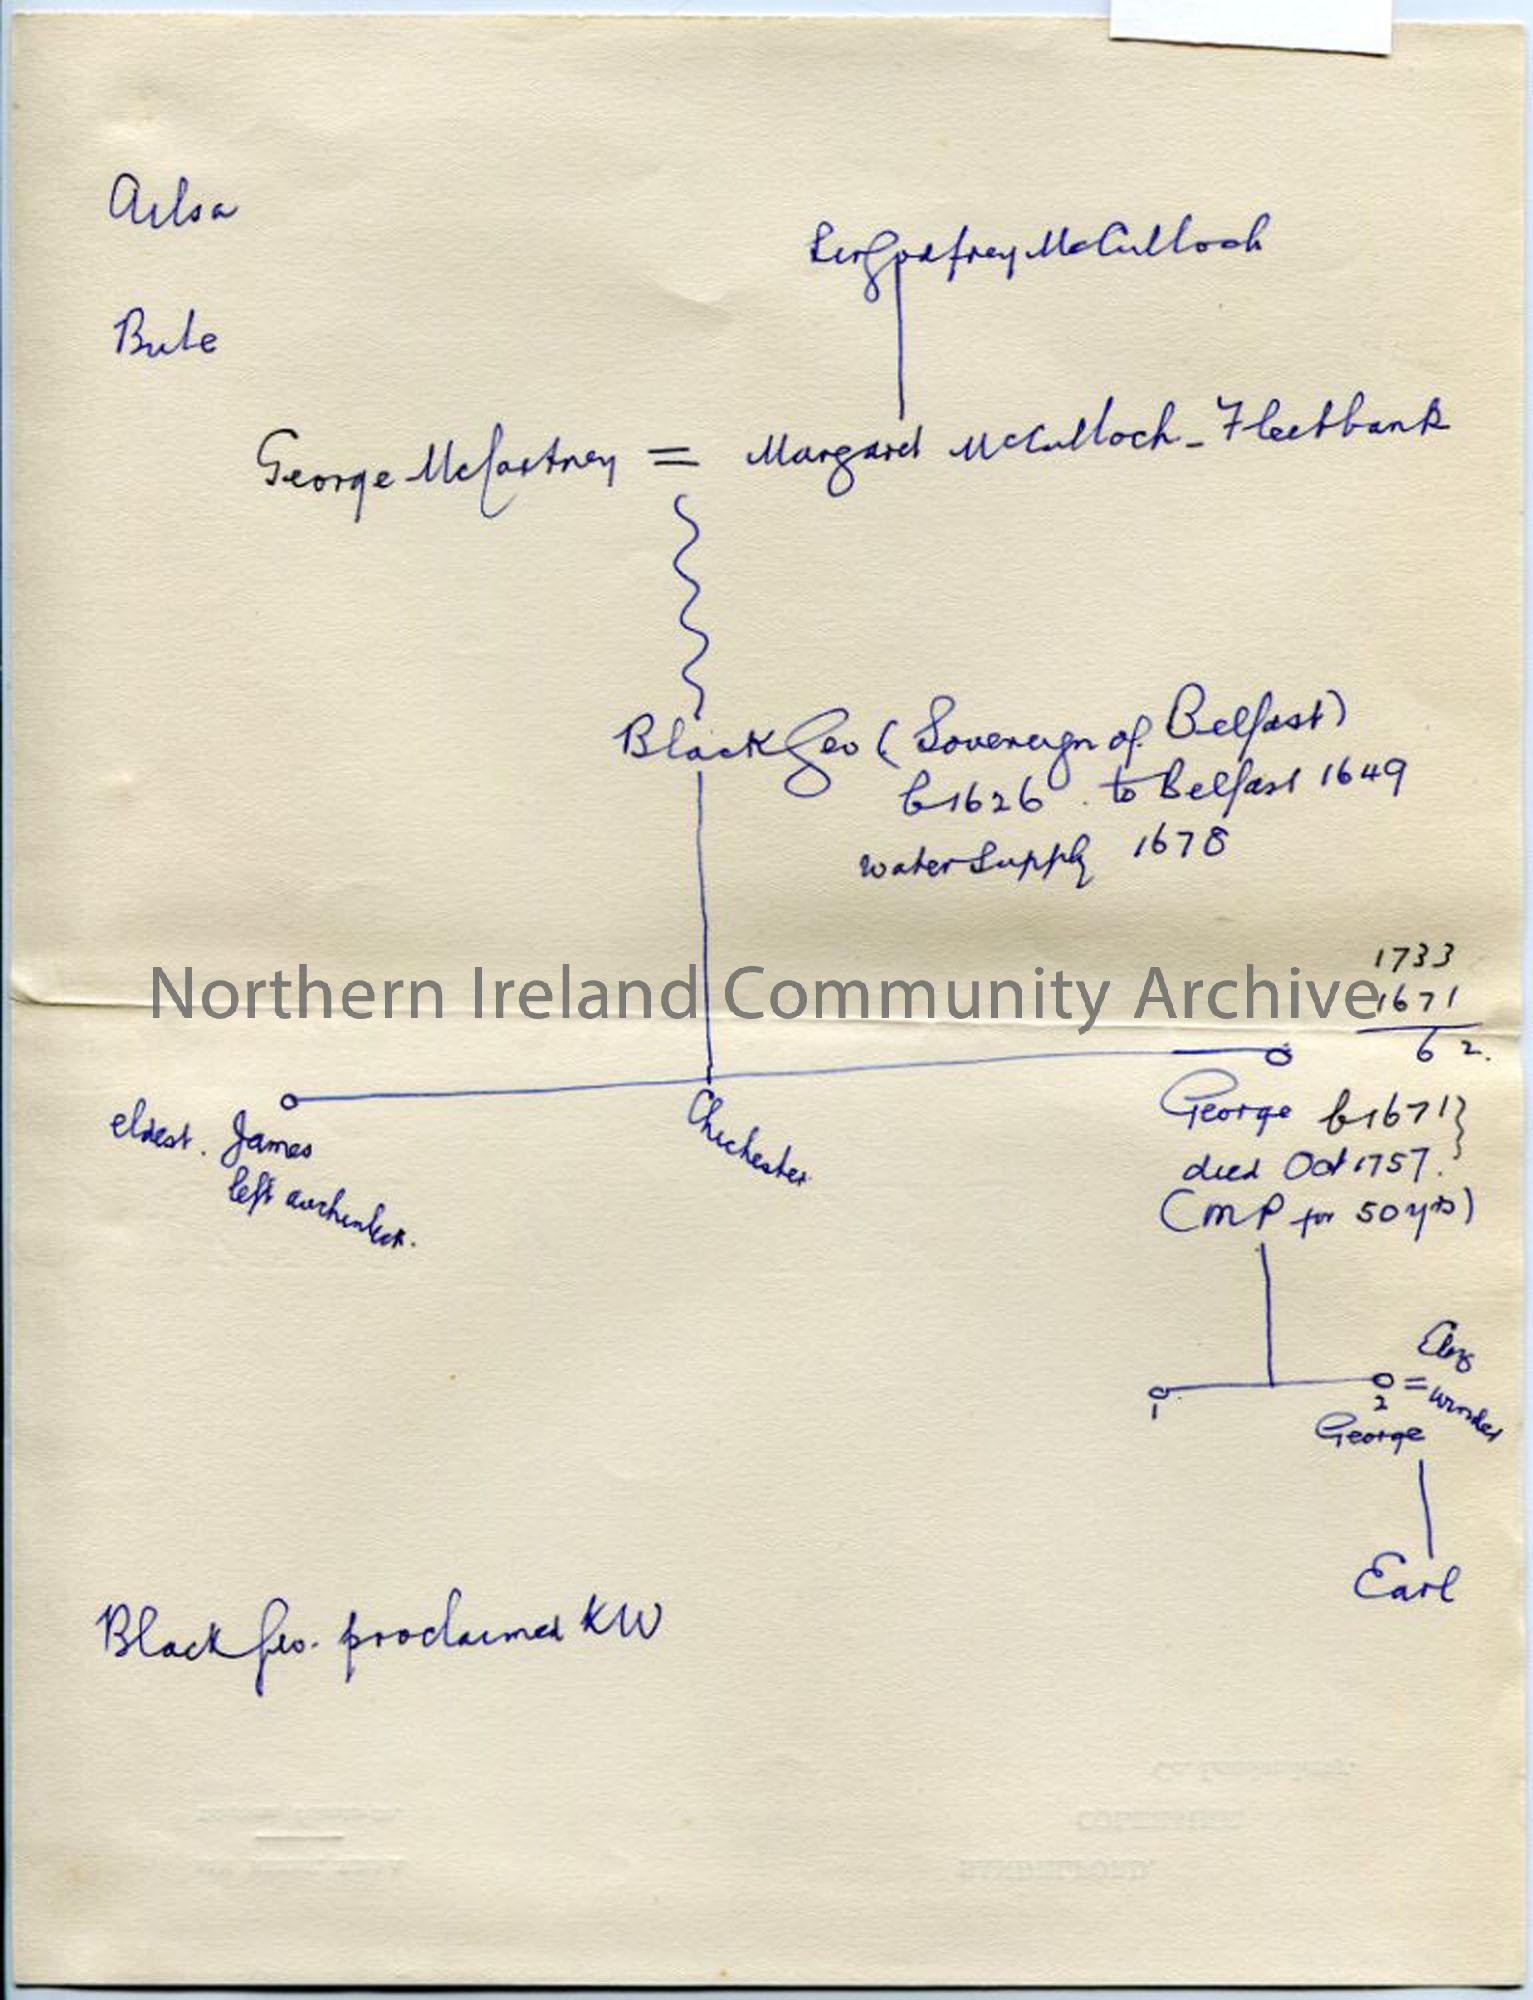 Ailsa
Sir Godfrey McCulloch
Bute
George McCartney = Margaret McCulloch - Fleetbank
Black Geo (Sovereign of Belfast)
b 1626 . to Belfast 1649
water supply 1678
1733
1671
62.
Northern Ireland Community Archive
eldest. James
left Auchinleck.
Chichester
George b 1671}
died Oct 1757.
(MP for 50 yrs)
Eliz
1
2 = Winder
George
Earl
Black Geo. proclaimed KW